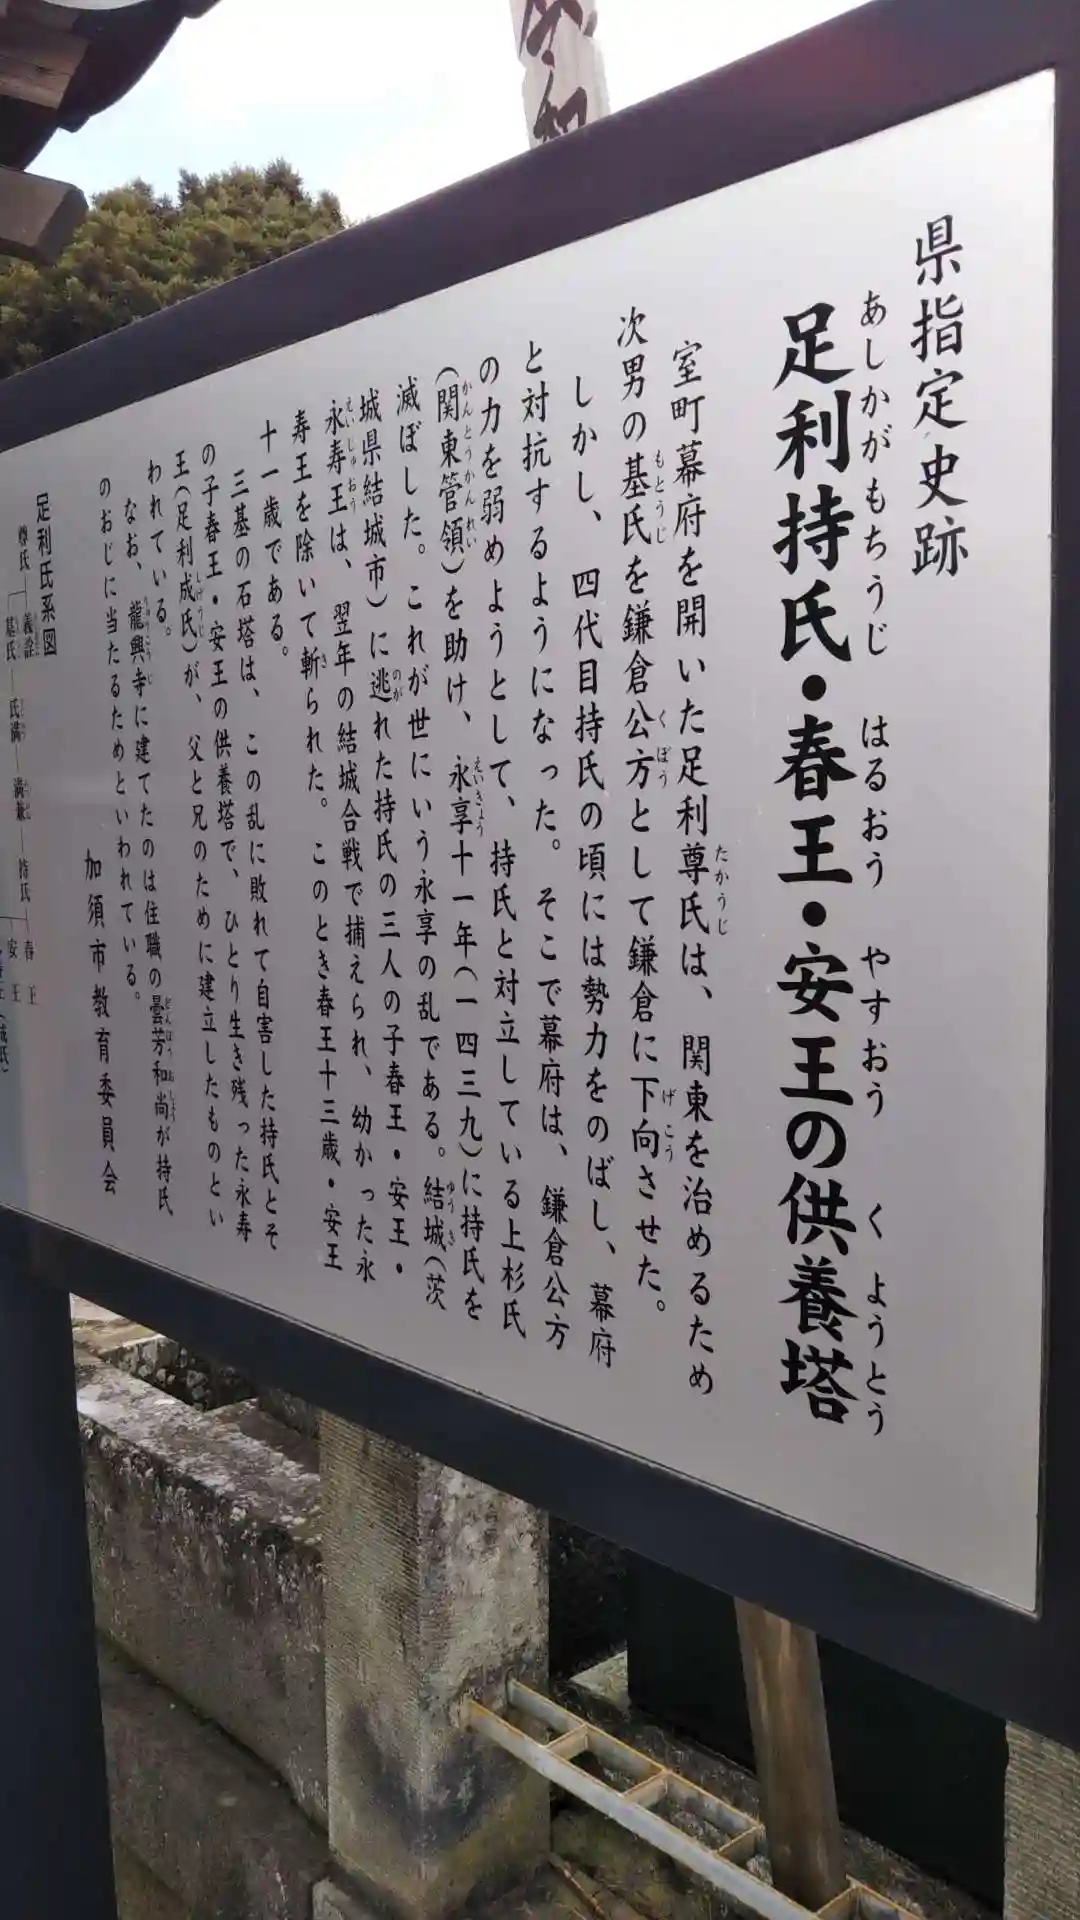 県指定史跡
あしかがもちうじ はるおう やすおう くようとう
足利持氏・春王・安王の供養塔
室町幕府を開いた足利尊氏は、関東を治めるため
たかうじ
次男の基氏を鎌倉公方として鎌倉に下向させた。
もとうじ くぼう げこう
しかし、四代目持氏の頃には勢力をのばし、幕府
と対抗するようになった。そこで幕府は、鎌倉公方
の力を弱めようとして、持氏と対立している上杉氏
(関東管領)を助け、永享十一年(一四三九)に持氏を
かんとうかんれい えいきょう
滅ぼした。これが世にいう永享の乱である。結城(茨
ゆうき
城県結城市)に逃れた持氏の三人の子春王・安王・
のが
永寿王は、翌年の結城合戦で捕えられ、幼かった永
えいじゅおう
寿王を除いて斬られた。このとき春王十三歳・安王
き
十一歳である。
三基の石塔は、この乱に敗れて自害した持氏とそ
の子春王・安王の供養塔で、ひとり生き残った永寿
王(足利成氏)が、父と兄のために建立したものとい
しげうじ
われている。
なお、龍興寺に建てたのは住職の曇芳和尚が持氏
りゅうこうじ どんぽうおしょう
のおじに当たるためといわれている。
加須市教育委員会
足利氏系図
尊氏 義詮
基氏 氏満 満兼 持氏 春王
安王